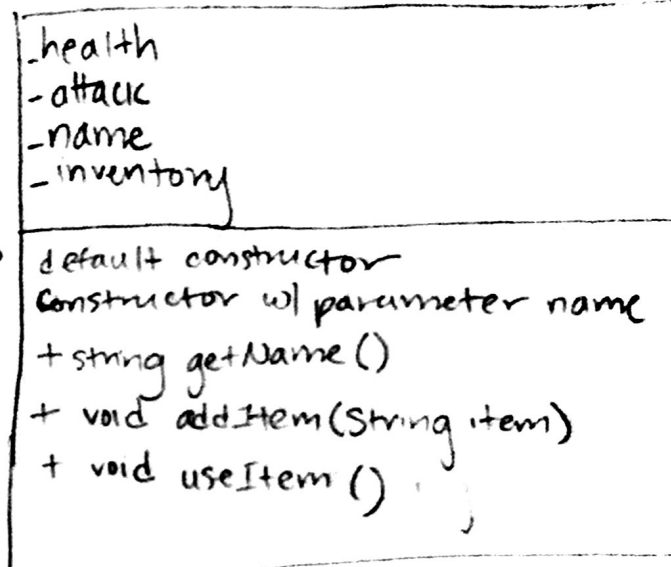 - health
- attack
- name
- inventory
default constructor
Constructor w/ parameter name
+ string getName()
+ void addItem(String item)
+ void useItem()